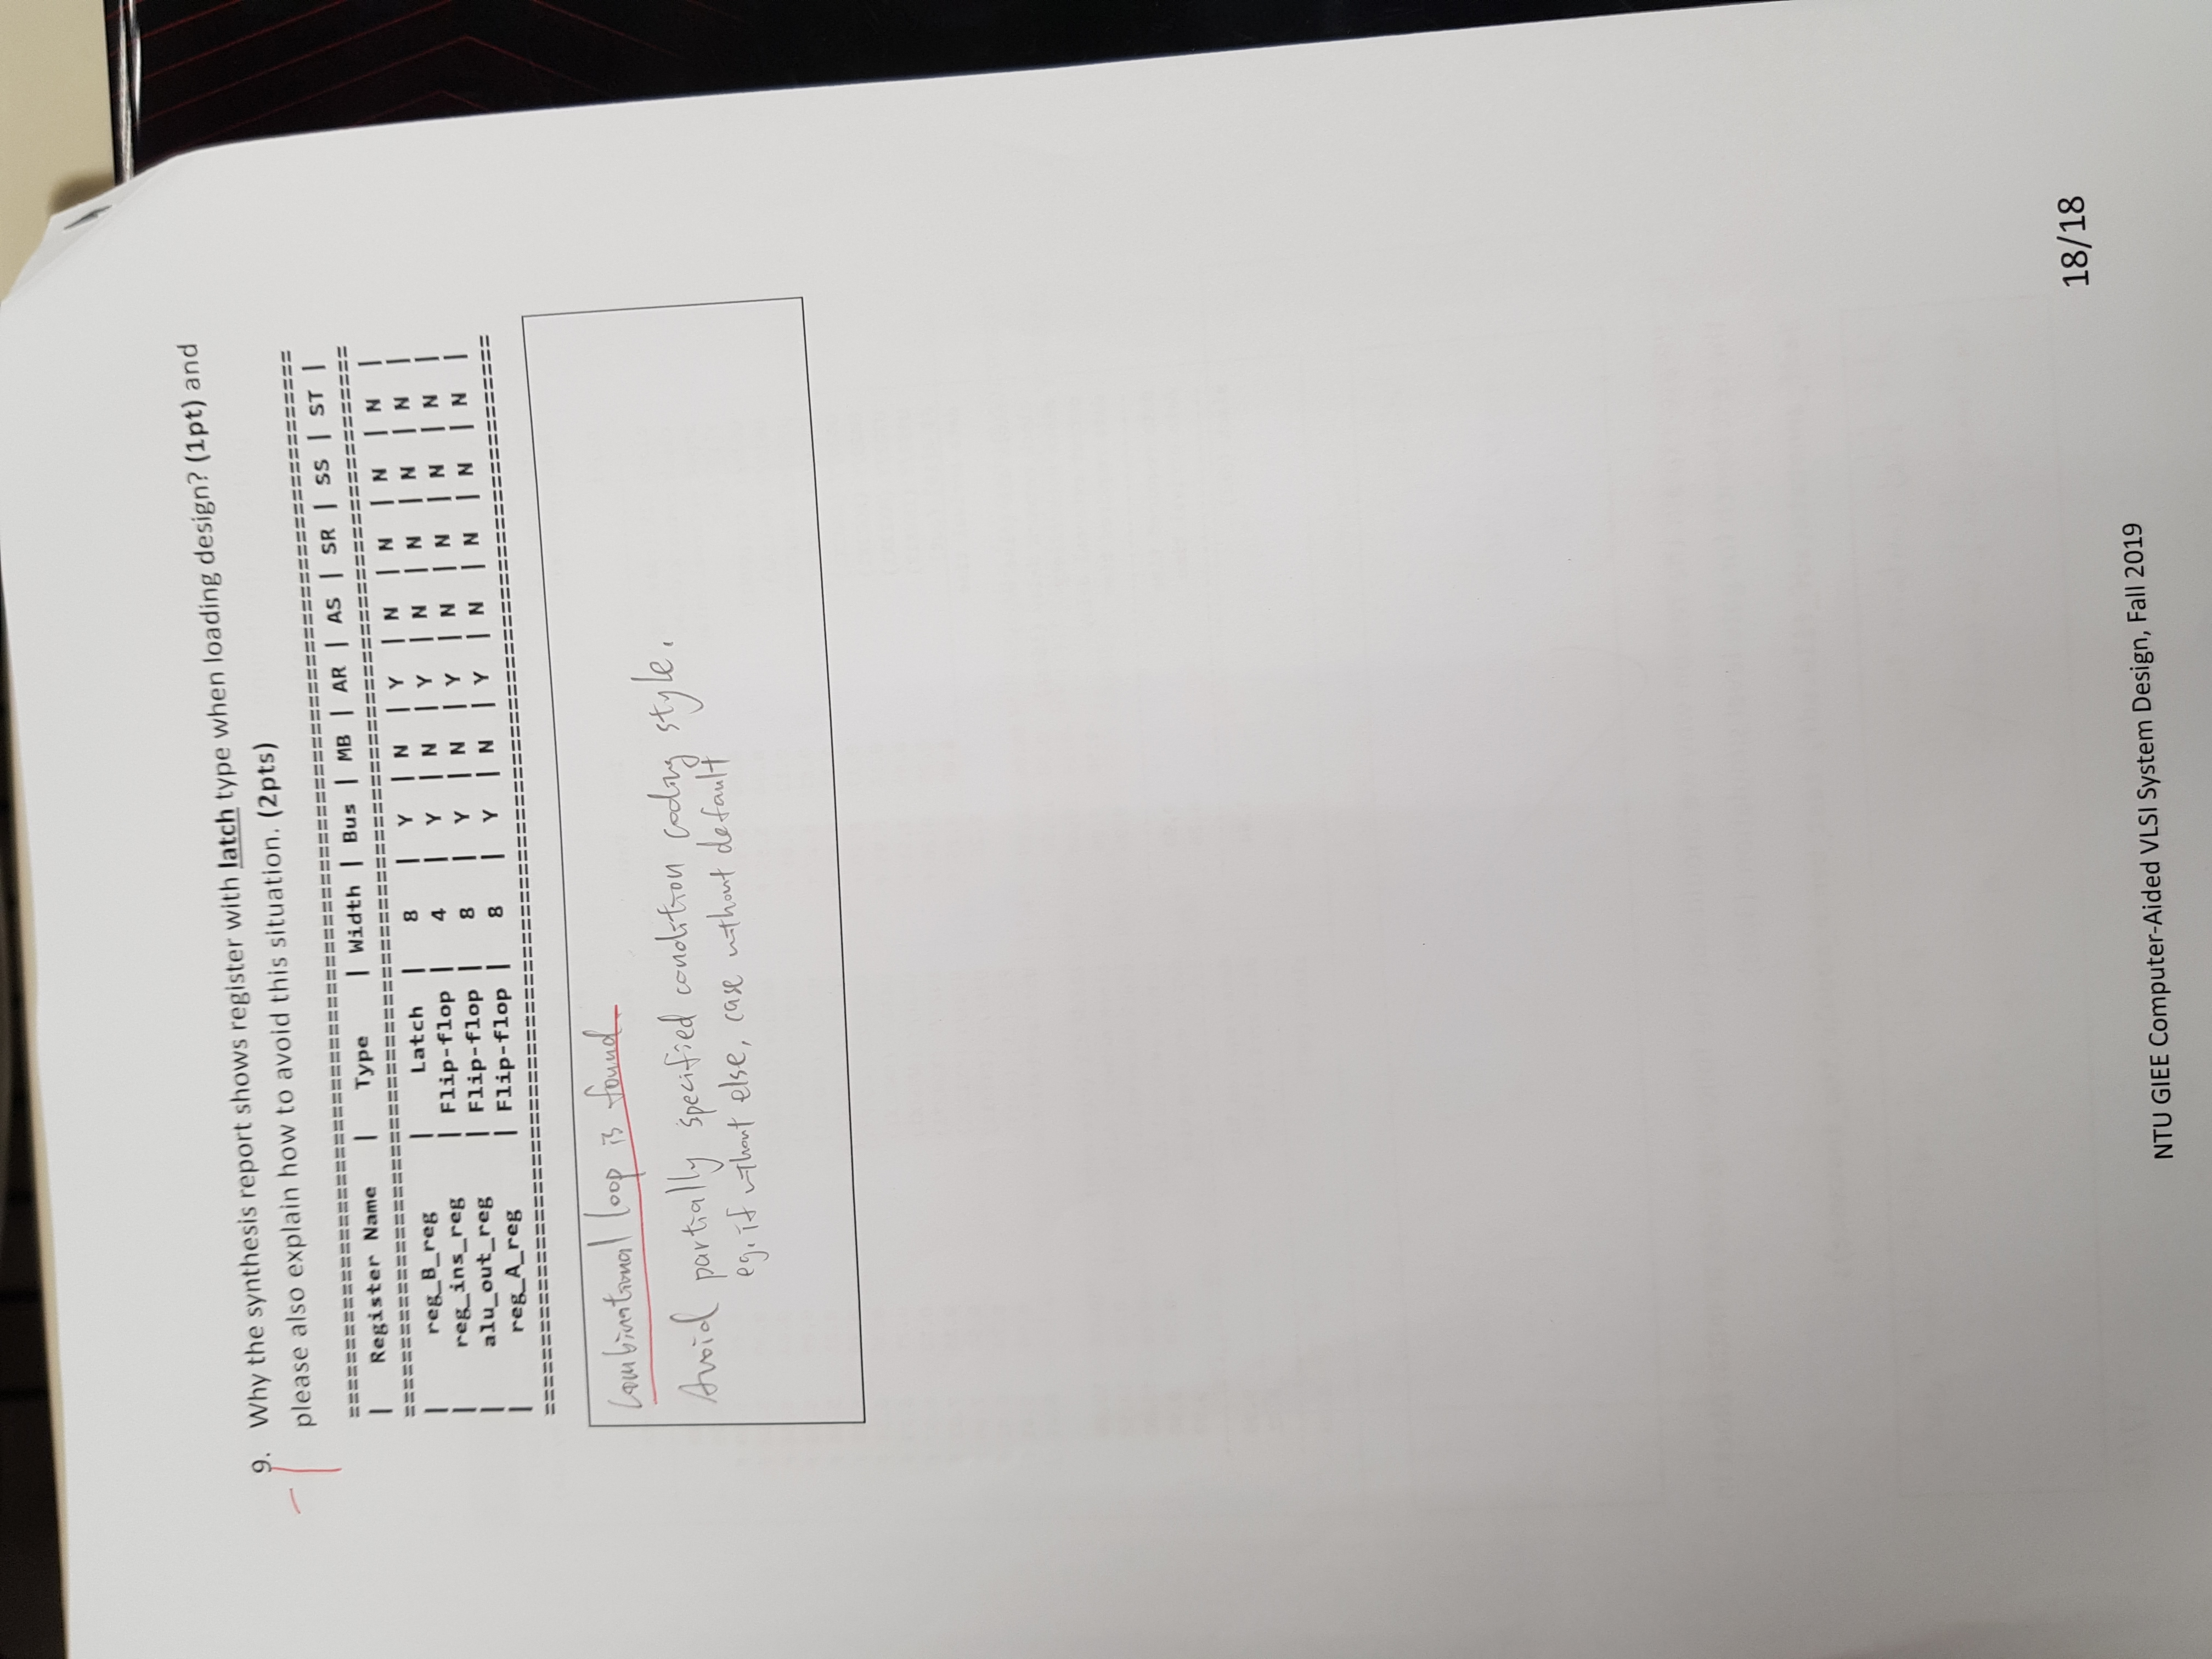 9. Why the synthesis report shows register with latch type when loading design? (1pt) and
please also explain how to avoid this situation. (2pts)
-1
| Register Name | Type | Width | Bus | MB | AR | AS | SR | SS | ST |
| reg_B_reg | Latch | 8 | Y | N | Y | N | N | N | N |
| reg_ins_reg | Flip-flop | 4 | Y | N | Y | N | N | N | N |
| alu_out_reg | Flip-flop | 8 | Y | N | Y | N | N | N | N |
| reg_A_reg | Flip-flop | 8 | Y | N | Y | N | N | N | N |
Combinational loop is found.
Avoid partially specified condition coding style.
eg. if without else, case without default
18/18
NTU GIEE Computer-Aided VLSI System Design, Fall 2019